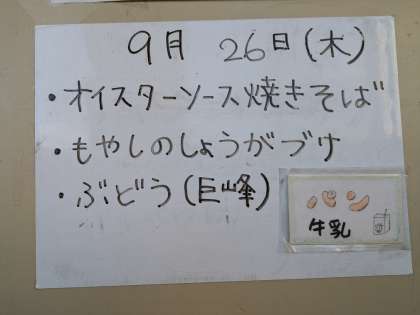 9月 26日(木)
・オイスターソース焼きそば
・もやしのしょうがづけ
・ぶどう(巨峰)
パン
牛乳